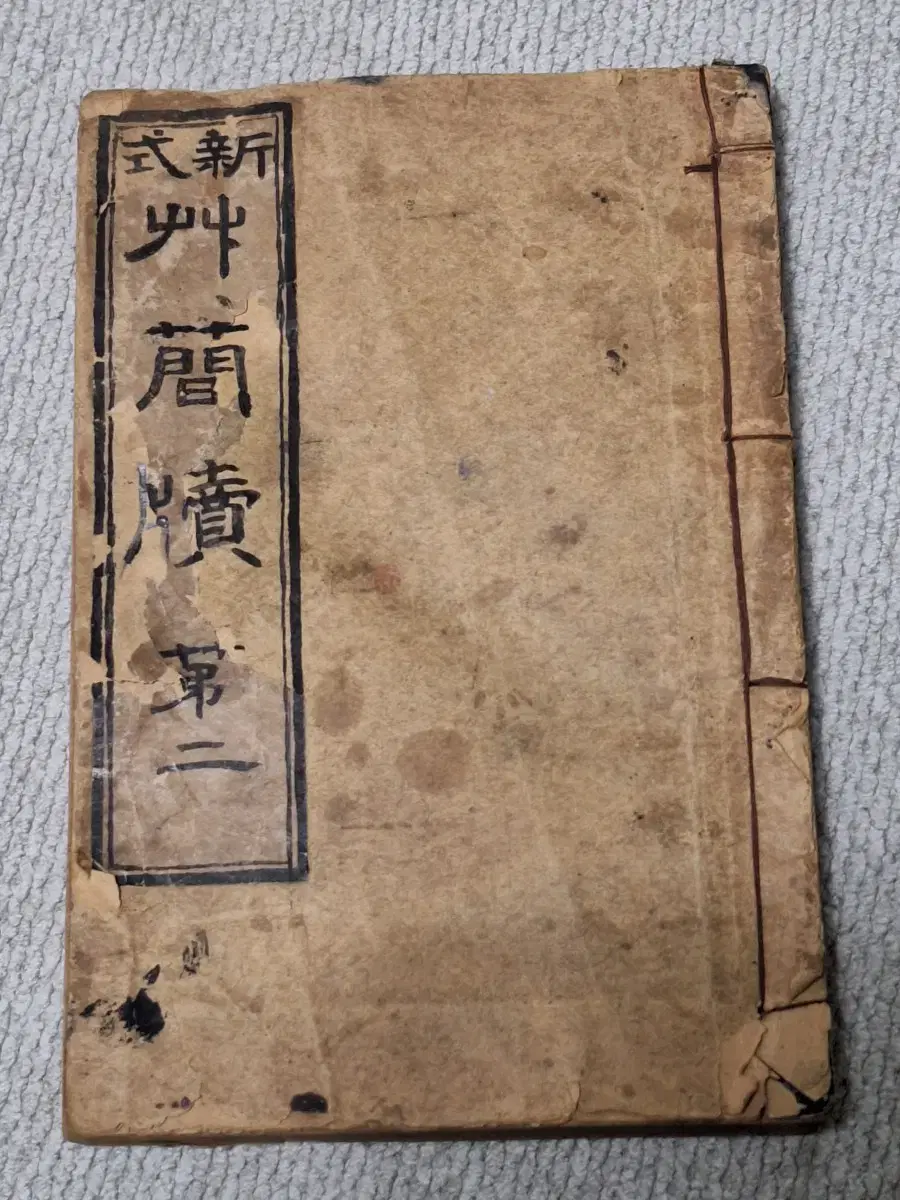 新式
艸簡牘
第二